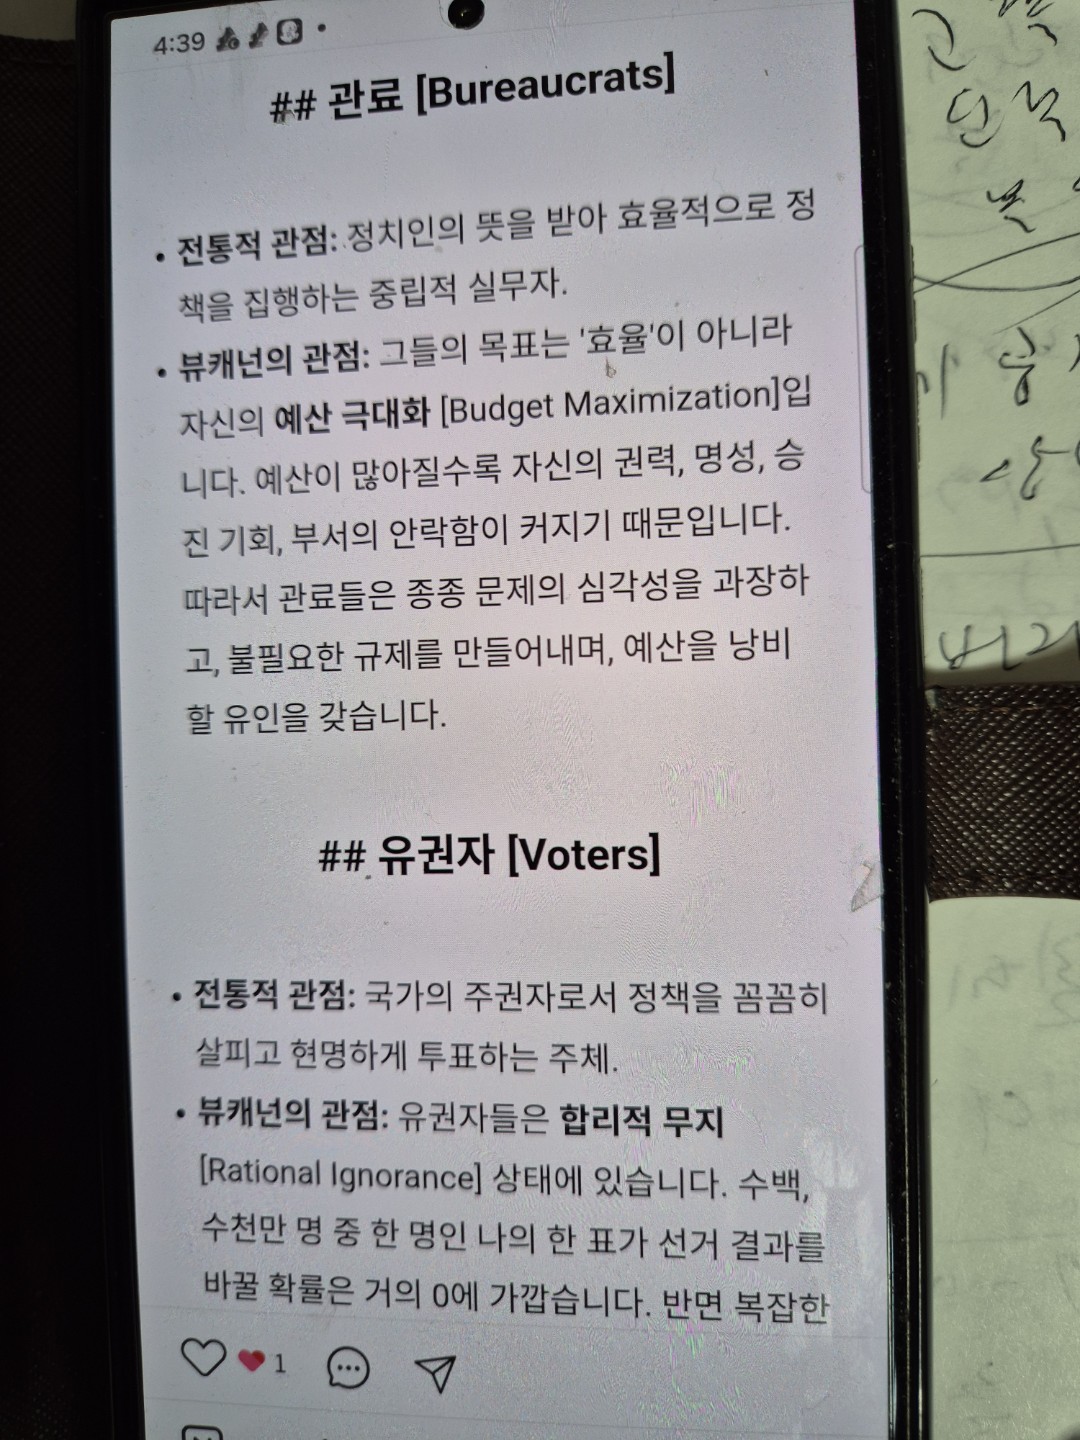 4:39
## 관료 [Bureaucrats]
• 전통적 관점: 정치인의 뜻을 받아 효율적으로 정
책을 집행하는 중립적 실무자.
• 뷰캐넌의 관점: 그들의 목표는 '효율'이 아니라
자신의 예산 극대화 [Budget Maximization]입
니다. 예산이 많아질수록 자신의 권력, 명성, 승
진 기회, 부서의 안락함이 커지기 때문입니다.
따라서 관료들은 종종 문제의 심각성을 과장하
고, 불필요한 규제를 만들어내며, 예산을 낭비
할 유인을 갖습니다.
## 유권자 [Voters]
• 전통적 관점: 국가의 주권자로서 정책을 꼼꼼히
살피고 현명하게 투표하는 주체.
• 뷰캐넌의 관점: 유권자들은 합리적 무지
[Rational Ignorance] 상태에 있습니다. 수백,
수천만 명 중 한 명인 나의 한 표가 선거 결과를
바꿀 확률은 거의 0에 가깝습니다. 반면 복잡한
1